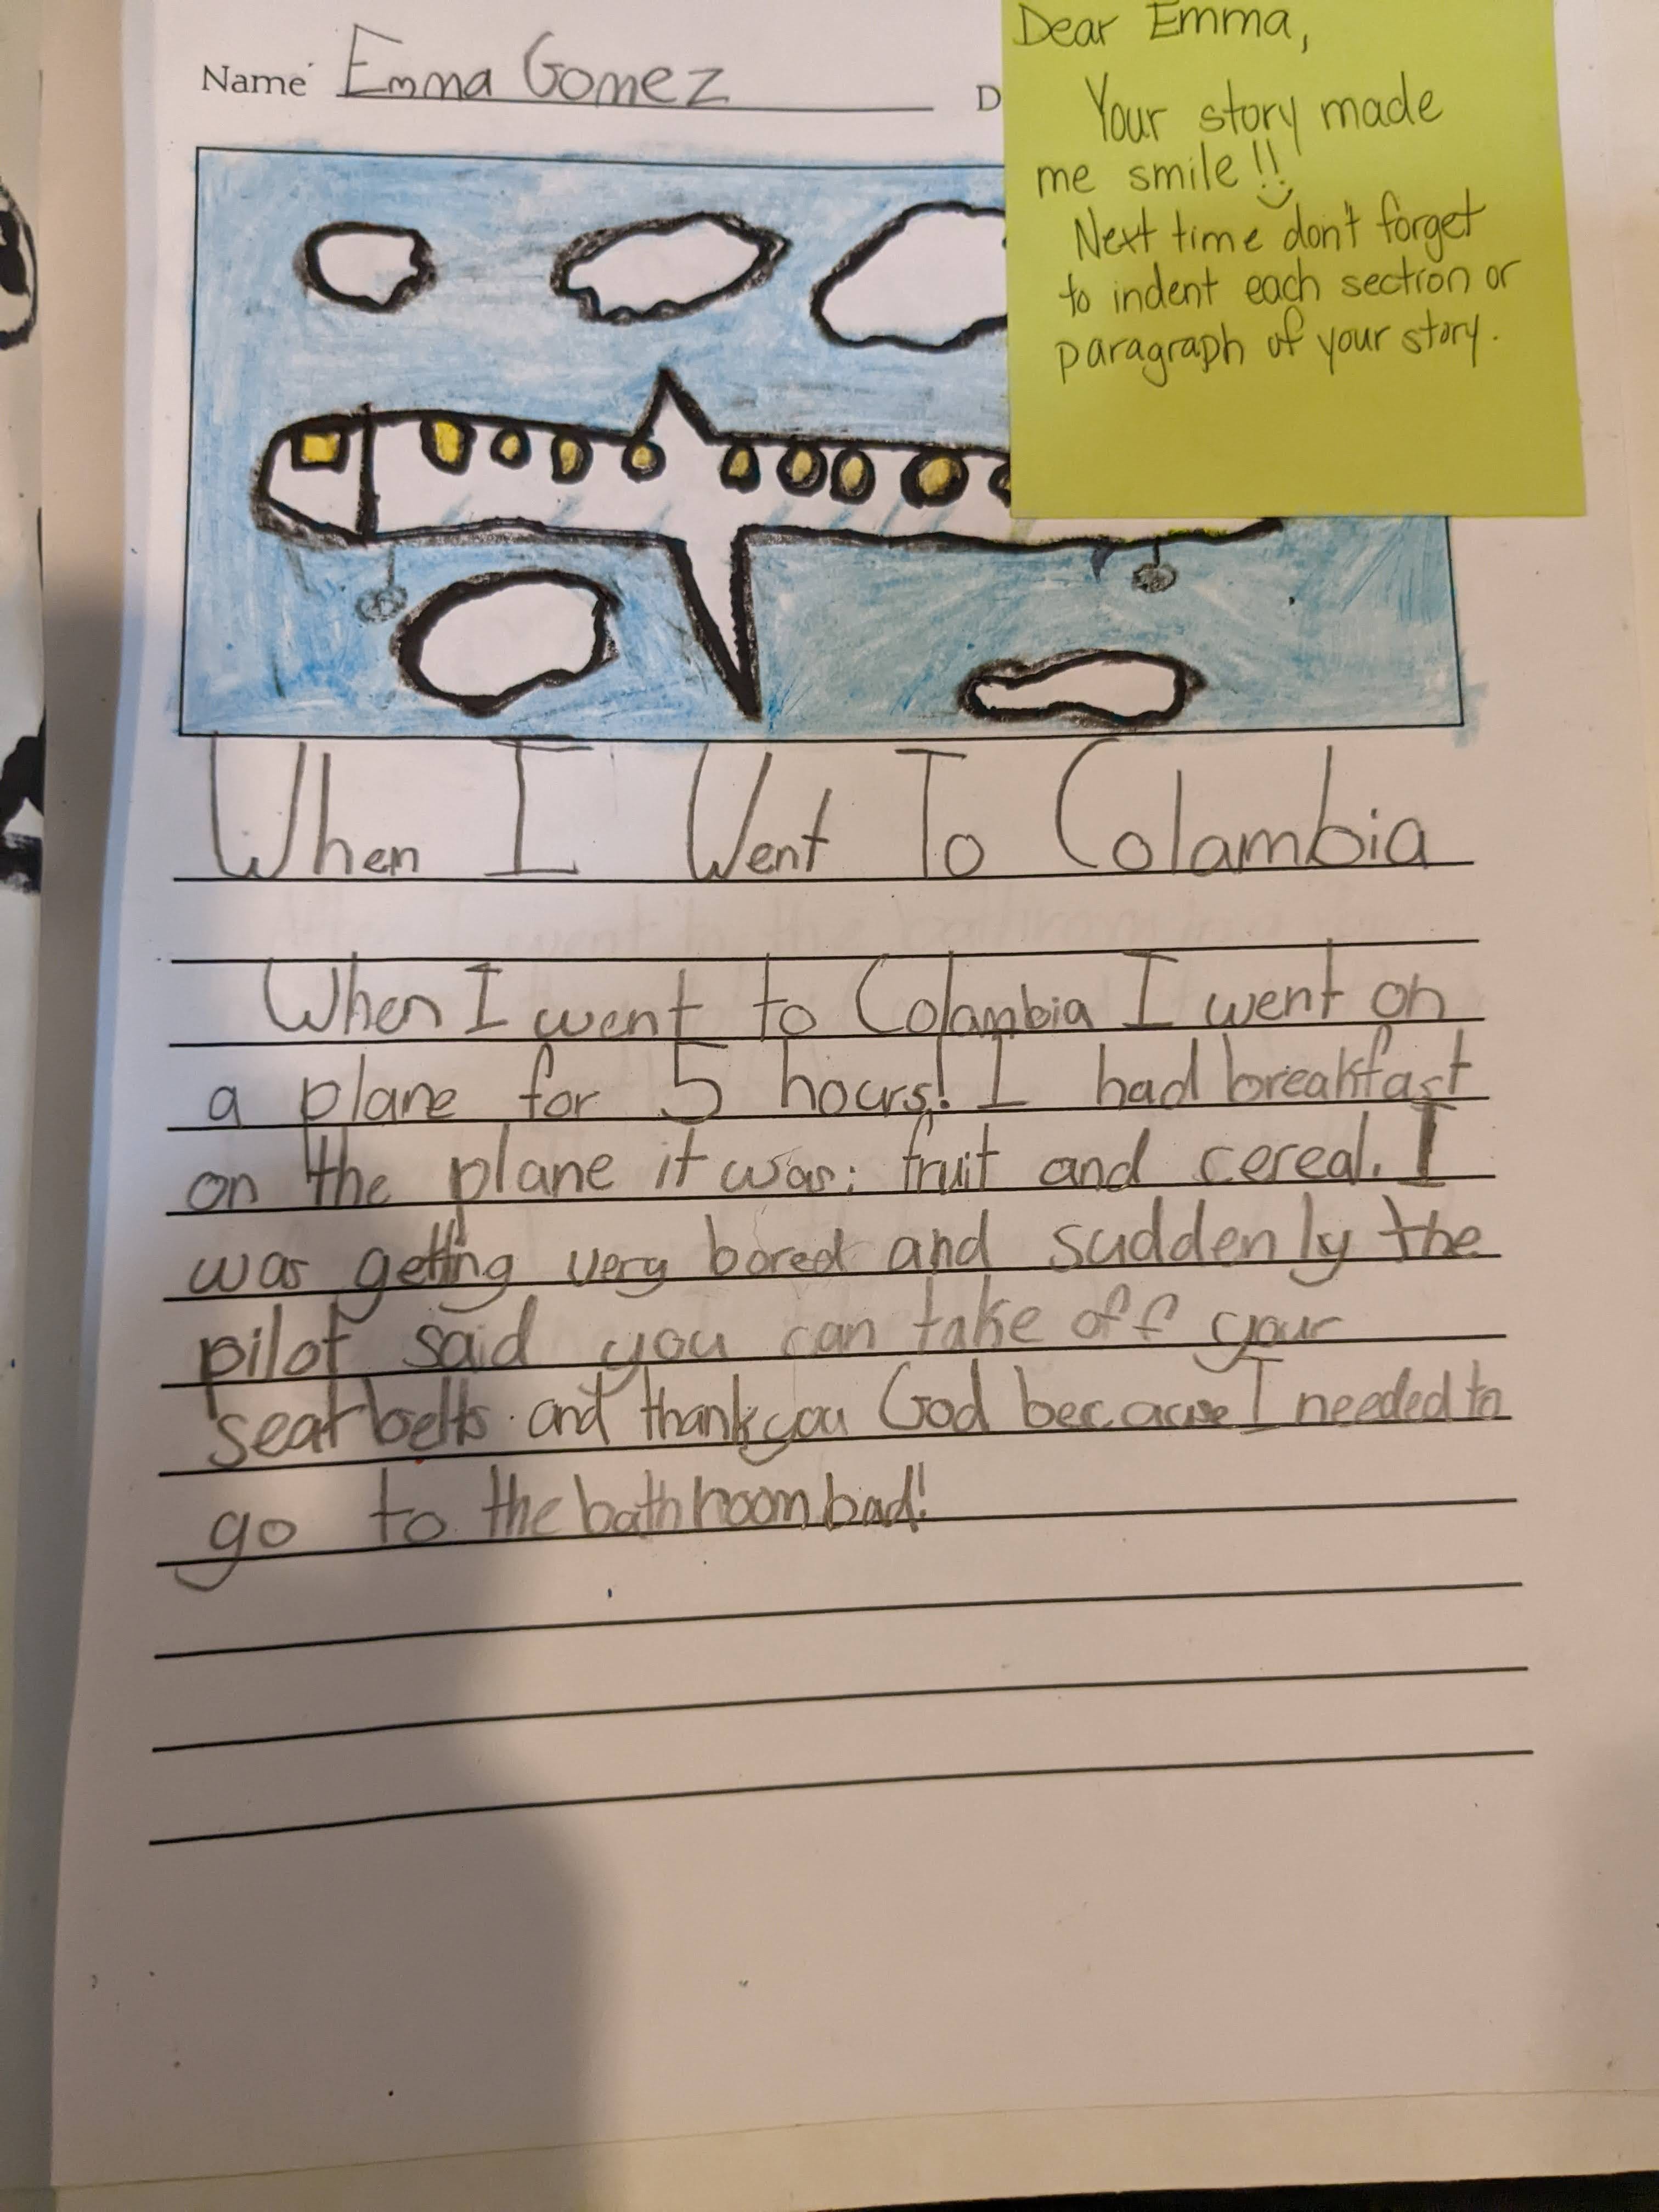 Name Emma Gomez D
Dear Emma,
Your story made
me smile!!
Next time don't forget
to indent each section or
paragraph of your story.
When I Went To Colambia
When I went to Colambia I went on
a plane for 5 hours! I had breakfast
on the plane it was: fruit and cereal. I
was getting very bored and suddenly the
pilot said you can take off your
seat belts. and thank you God because I needed to
go to the bathroom bad!